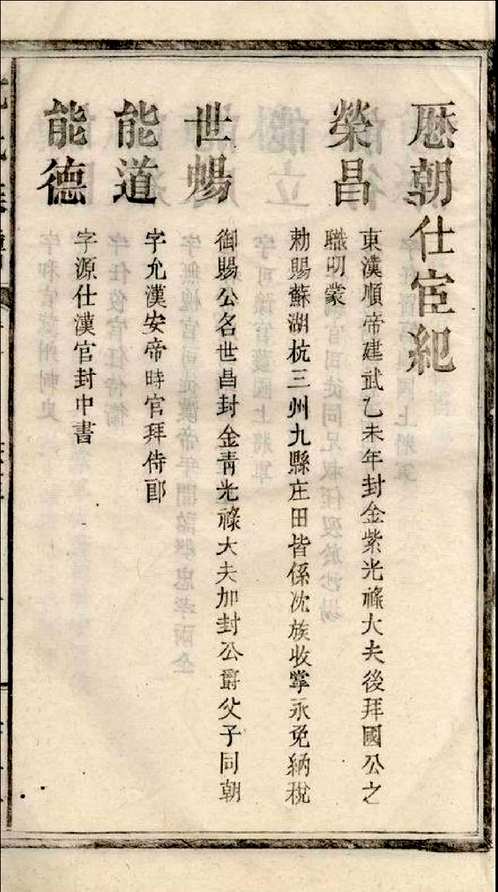 厯朝仕宦紀
榮昌
東漢順帝建武乙未年封金紫光祿大夫後拜國公之
職明蒙
勅賜蘇湖杭三州九縣庄田皆係沈族收掌永免納稅
世暢
御賜公名世昌封金青光祿大夫加封公爵父子同朝
能道
字允漢安帝時官拜侍郎
能德
字源仕漢官封中書